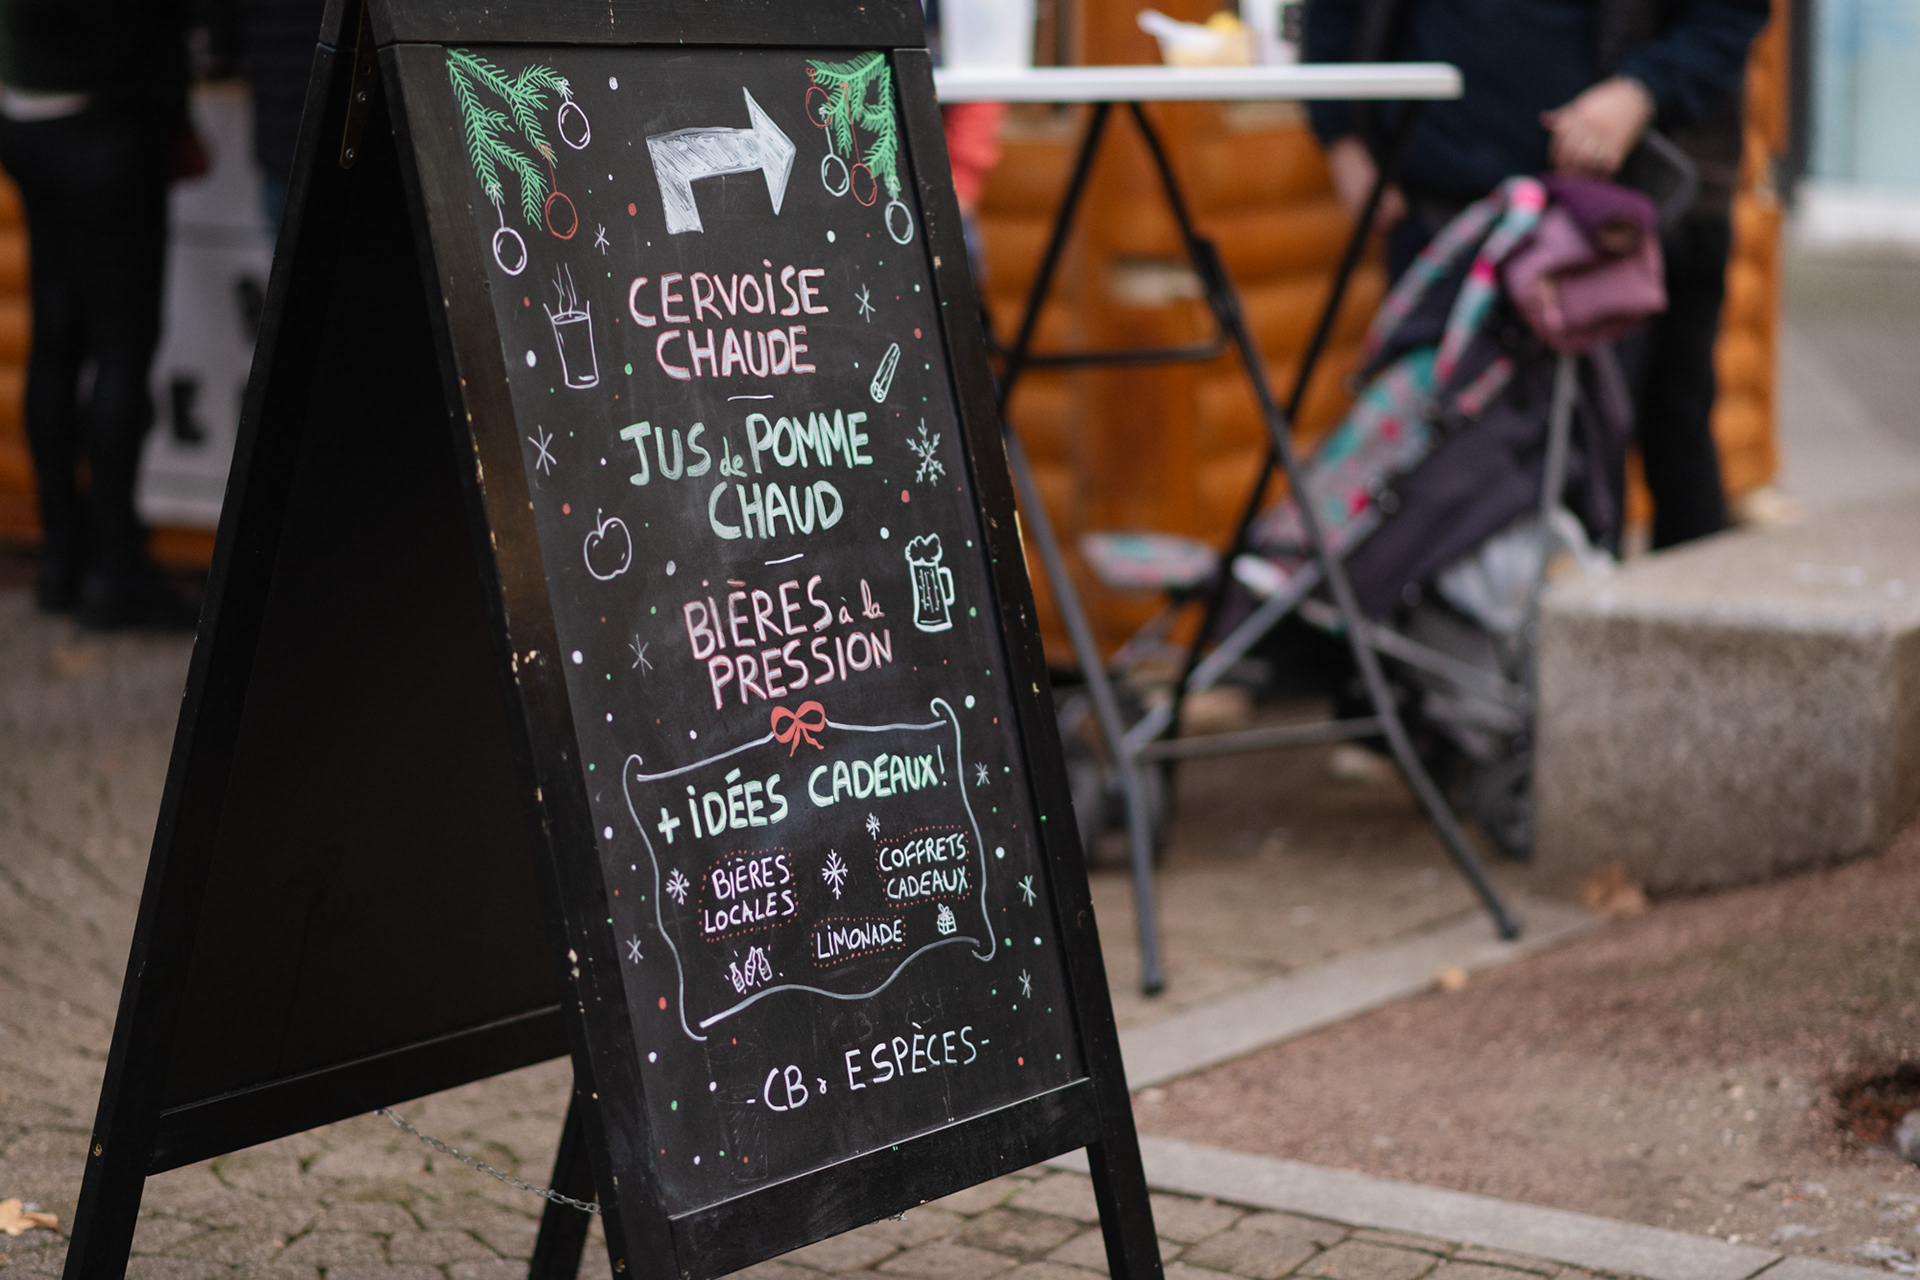 CERVOISE
CHAUDE
JUS de POMME
CHAUD
BIÈRES à la
PRESSION
+ IDÉES CADEAUX!
BIÈRES
LOCALES
COFFRETS
CADEAUX
LIMONADE
- CB & ESPÈCES -